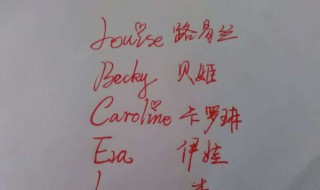 Louise 路易丝
Becky 贝姬
Caroline 卡罗琳
Eva 伊娃